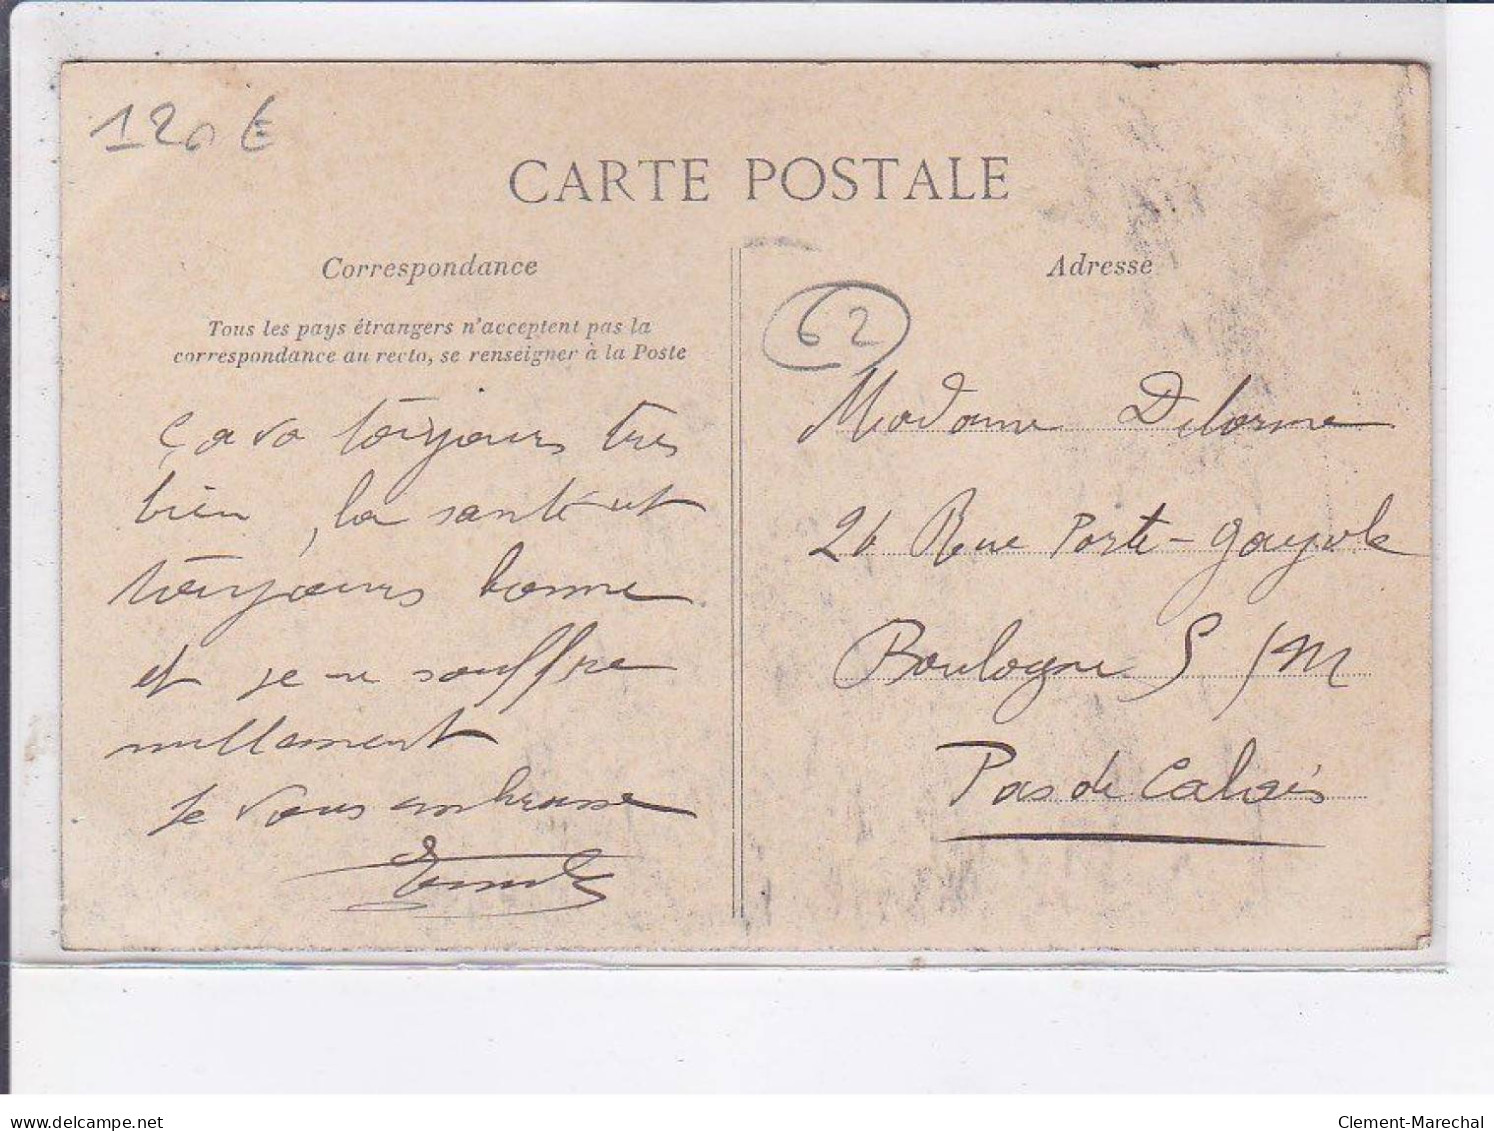 120 €
CARTE POSTALE
Correspondance
Tous les pays étrangers n'acceptent pas la
correspondance au recto, se renseigner à la Poste
ça va toujours tres
bien, la santé est
toujours bonne
et je ne souffre
nullement
Je vous embrasse
Adresse
62
Madame Delorme
26 Rue Porte-gayole
Boulogne S/M
Pas de Calais
delcampe.net
Clement-Marechal